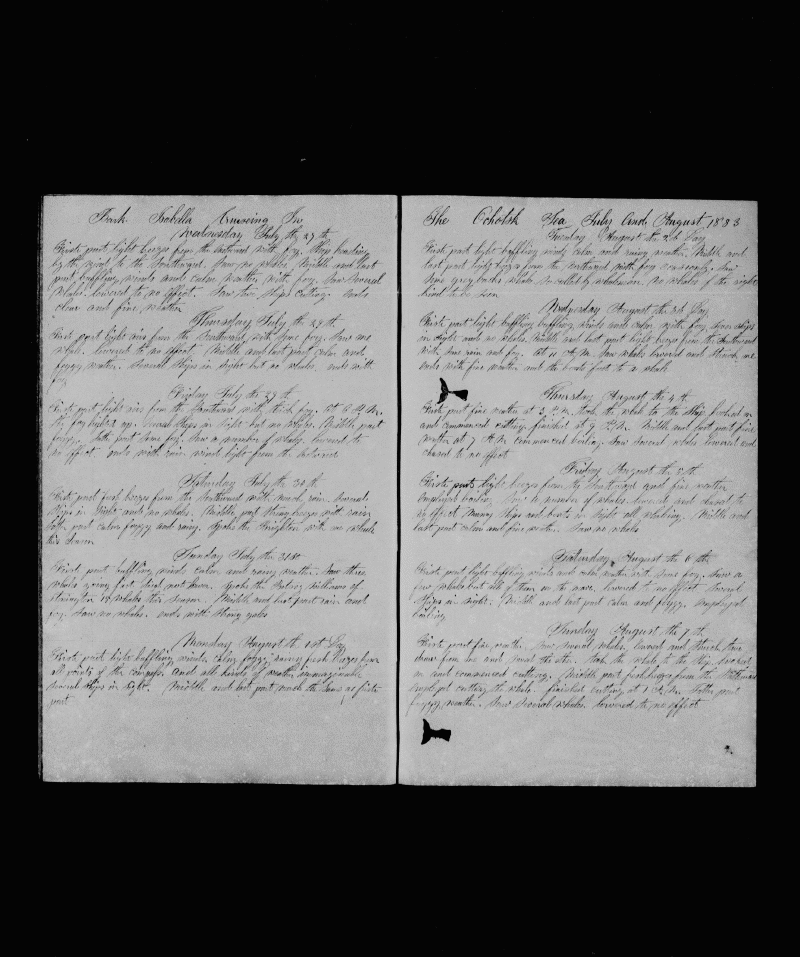 Bark Isabella Cruseing In
Wednesday July the 27 th
Firste part light breezes from the Southward with fog. Ship heading
by the wind to the Southward. Saw no whales. Middle and last
part baffling winds and calm weather with fog. Saw several
whales. lowered to no effect. Saw two Ships Cutting. ends
clear and fine weather
Thursday July the 28 th
Firste part light airs from the Southward with some fog. Saw one
whale. lowered to no effect. Middle and last part calm and
foggy weather. Several Ships in Sight but no whales. ends with
fog
Friday July the 29 th
Firste part light airs from the Southward with thick fog. At 6 P.M.
the fog lighted up. Several Ships in Sight but no whales. Middle part
foggy. last part some fog. Saw a number of whales. lowered to
no effect. ends with rain wind light from the
Saturday July the 30 th
Firste part fresh breezes from the Southward with much rain. Several
Ships in Sight and no whales. Middle part strong breezes with rain
latter part calm foggy and rainy. Spoke the Brighton with one whale
this Season
Sunday July the 31st
Firste part baffling winds calm and rainy weather. Saw three
whales going fast. Spoke the
15 whales this season. Middle and last part rain and
fog. Saw no whales. ends with strong gales
Monday August the 1st Day
Firste part light baffling winds calm, foggy, rainy, fresh breezes from
all points of the compass. and all kinds of weather unimaginable
Several Ships in Sight. Middle and last part much the same as firste
part
The Ochotsk Sea July and August 1853
Tuesday August the 2d Day
Firste part light baffling winds calm and rainy weather. Middle and
last part light from the Northward with fog
Some grey backs whales so called by whalemen. No whales of the right
kind to be seen
Wednesday August the 3d Day
Firste part light baffling winds and calm with fog. Seven Ships
in Sight and no whales. Middle and last part light breezes from the Southward
with some rain and fog. At 11 A.M. Saw whales lowered and Struck one
ends with fine weather and the boats fast to a whale
Thursday August the 4 th
Firste part fine weather at 3 P.M. took the whale to the Ship hooked on
and commenced cutting. finished at 9 P.M. Middle and last part fine
weather at 7 A.M. commenced boiling. Saw several whales lowered and
chased to no effect
Friday August the 5 th
Firste part light breezes from the Southward and fine weather
employed boiling. Saw a number of whales. lowered and chased to
no effect. Many Ships and boats in Sight all whaling. Middle and
last part calm and fine weather. Saw no whales
Saturday August the 6 th
Firste part light baffling winds and calm weather with some fog. Saw a
few whales but all of them on the move. lowered to no effect. Several
Ships in Sight. Middle and last part calm and foggy. employed
boiling
Sunday August the 7 th
Firste part fine weather. Saw several whales. lowered and Struck two
drew from one and Saved the other. Took the whale to the Ship hooked
on and commenced cutting. Middle part fresh breezes from the
employed cutting the whale. finished cutting at 1 A.M. latter part
foggy weather. Saw several whales. lowered to no effect